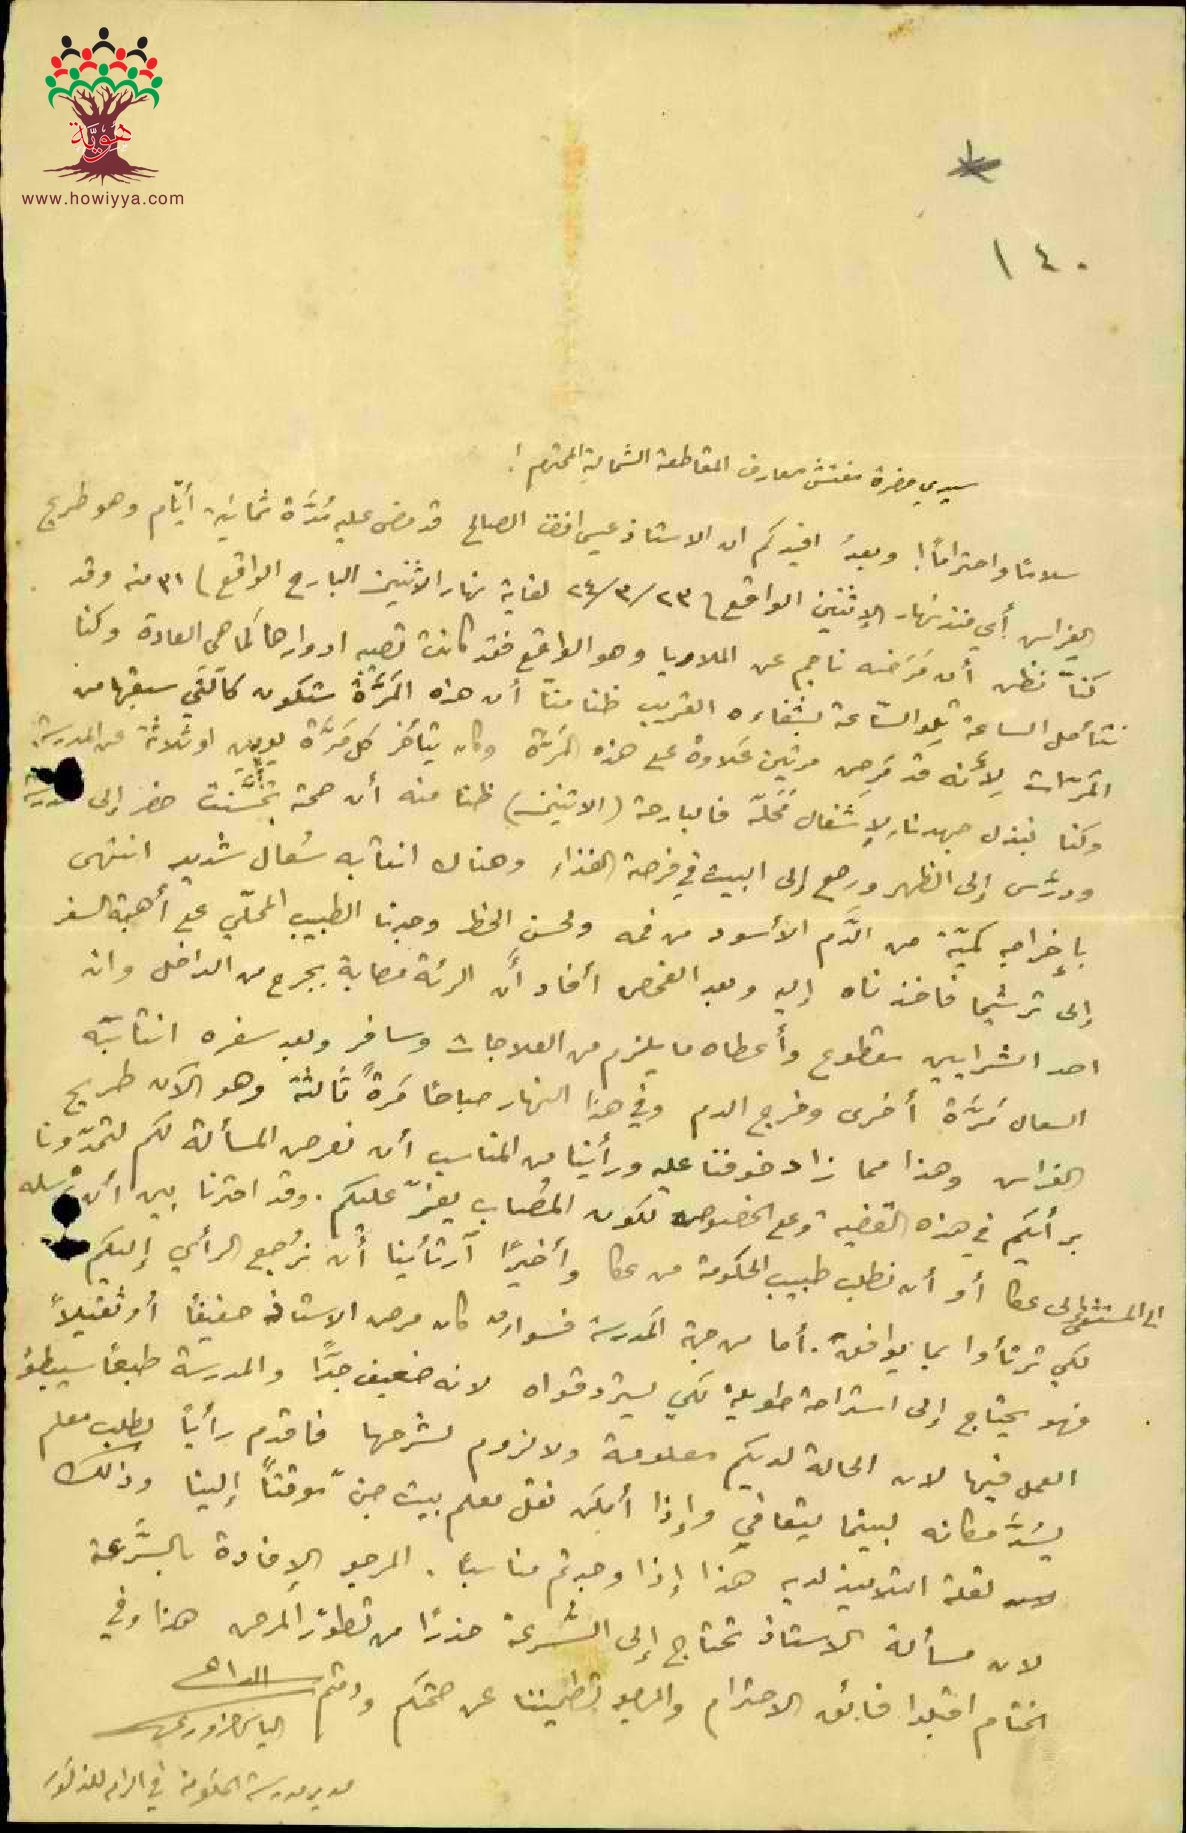 هوية
www.howiyya.com
١٤٠
سيدي حضرة مفتش معارف المقاطعة الشمالية المحترم!
سلامًا واحترامًا! وبعدُ افيدكم ان الاستاذ عيسى افندي الصالح قد مضى عليه مُدَّة ثمانية أيّام وهو طريح
الفراش أي منذ نهار الإثنين الواقع في ٢٣/٣/٢٤ لغاية نهار الاثنين البارح الواقع في ٣١ منه وقد
كنَّا نظن أن مَرَضه ناجم عن الملاريا وهو الواقع فقد كانت تصيبه ادوارها كما هي العادة وكنا
نتأمل الساعة تِلو السّاعة بشفاءه القريب ظنا منّا أن هذه المَرَّةُ ستكون كالّتي سبقها من
المَرّات لِأنه قد مَرِض مرتين عَلاوة على هذه المَرَّة وكان يتأخر كل مَرَّة يومين او ثلاثة عن المدرسة
وكنا نبذل جهدنا لإشغال مَحَلّه فالبارحة (الاثنين) ظنا منه أن صحته تحسَّنت حضر إلى
ودرَّس إلى الظهر ورجع إلى البيت في فرصة الغذاء وهناك انتابه سُعال شديد انتهى
بإخراجِ كميّة من الدَّم الأسود من فمه ولحسن الحظ وجدنا الطبيب المحلّي على أهبة السفر
إلى ترشيحا فاخذناه إليه وبعد الفحص أفاد أنَّ الرئة مصابة بجرح من الداخل وان
احد الشرايين مقطوع وأعطاه ما يلزم من العلاجات وسافر وبعد سفره انتابَتْه
السعال مَرَّة أخرى وخرج الدم وفي هذا النهار صباحًا مَرةً ثالثة وهو الآن طريح
الفراش وهذا مما زاد خوفنا عليه ورأينا من المناسب أن نعرض المسألة لكم لتمدّونا
برأيكم في هذه القضية وعلى الخصوص لكون المُصاب يعزّ عليكم. وقد احترنا بين أن نُرسله
الى المستشفى الى عكا أو أن نطلب طبيب الحكومة من عكا وأخيرًا آرتأينا أن نُرجع الرأي إليكم
لكي ترتأوا بما يوافق. أما من جهة المَدرسة فسواءٌ كان مرض الاستاذ خفيفًا أو ثقيلًا
فهو يحتاج إلى استراحة طويلة لكي يسترد قواه لانه ضعيف جدًّا والمدرسة طبعًا سيبطؤ
العمل فيها لان الحالة لديكم معلومة ولا لزوم لشرحها فاقدم رأيًا بطلب معلم
يسُدَّ مكانه لبينما يتعافى وإذا أمكن نقل معلم بيت جنّ موقتًا إلينا وذلك
لقلة التلاميذ لديه هذا إذا وجدتم مناسبًا. المرجو الإفادة بالسُّرعة
لان مسألة الاستاذ تحتاج إلى السُّرعة حذرًا من تطوّر المرض هذا وفي
الختام اقبلوا فائق الاحترام والمرجو تطميننا عن صحتكم ودمتم
الياس
مدير مدرسة الحكومة في الرامه